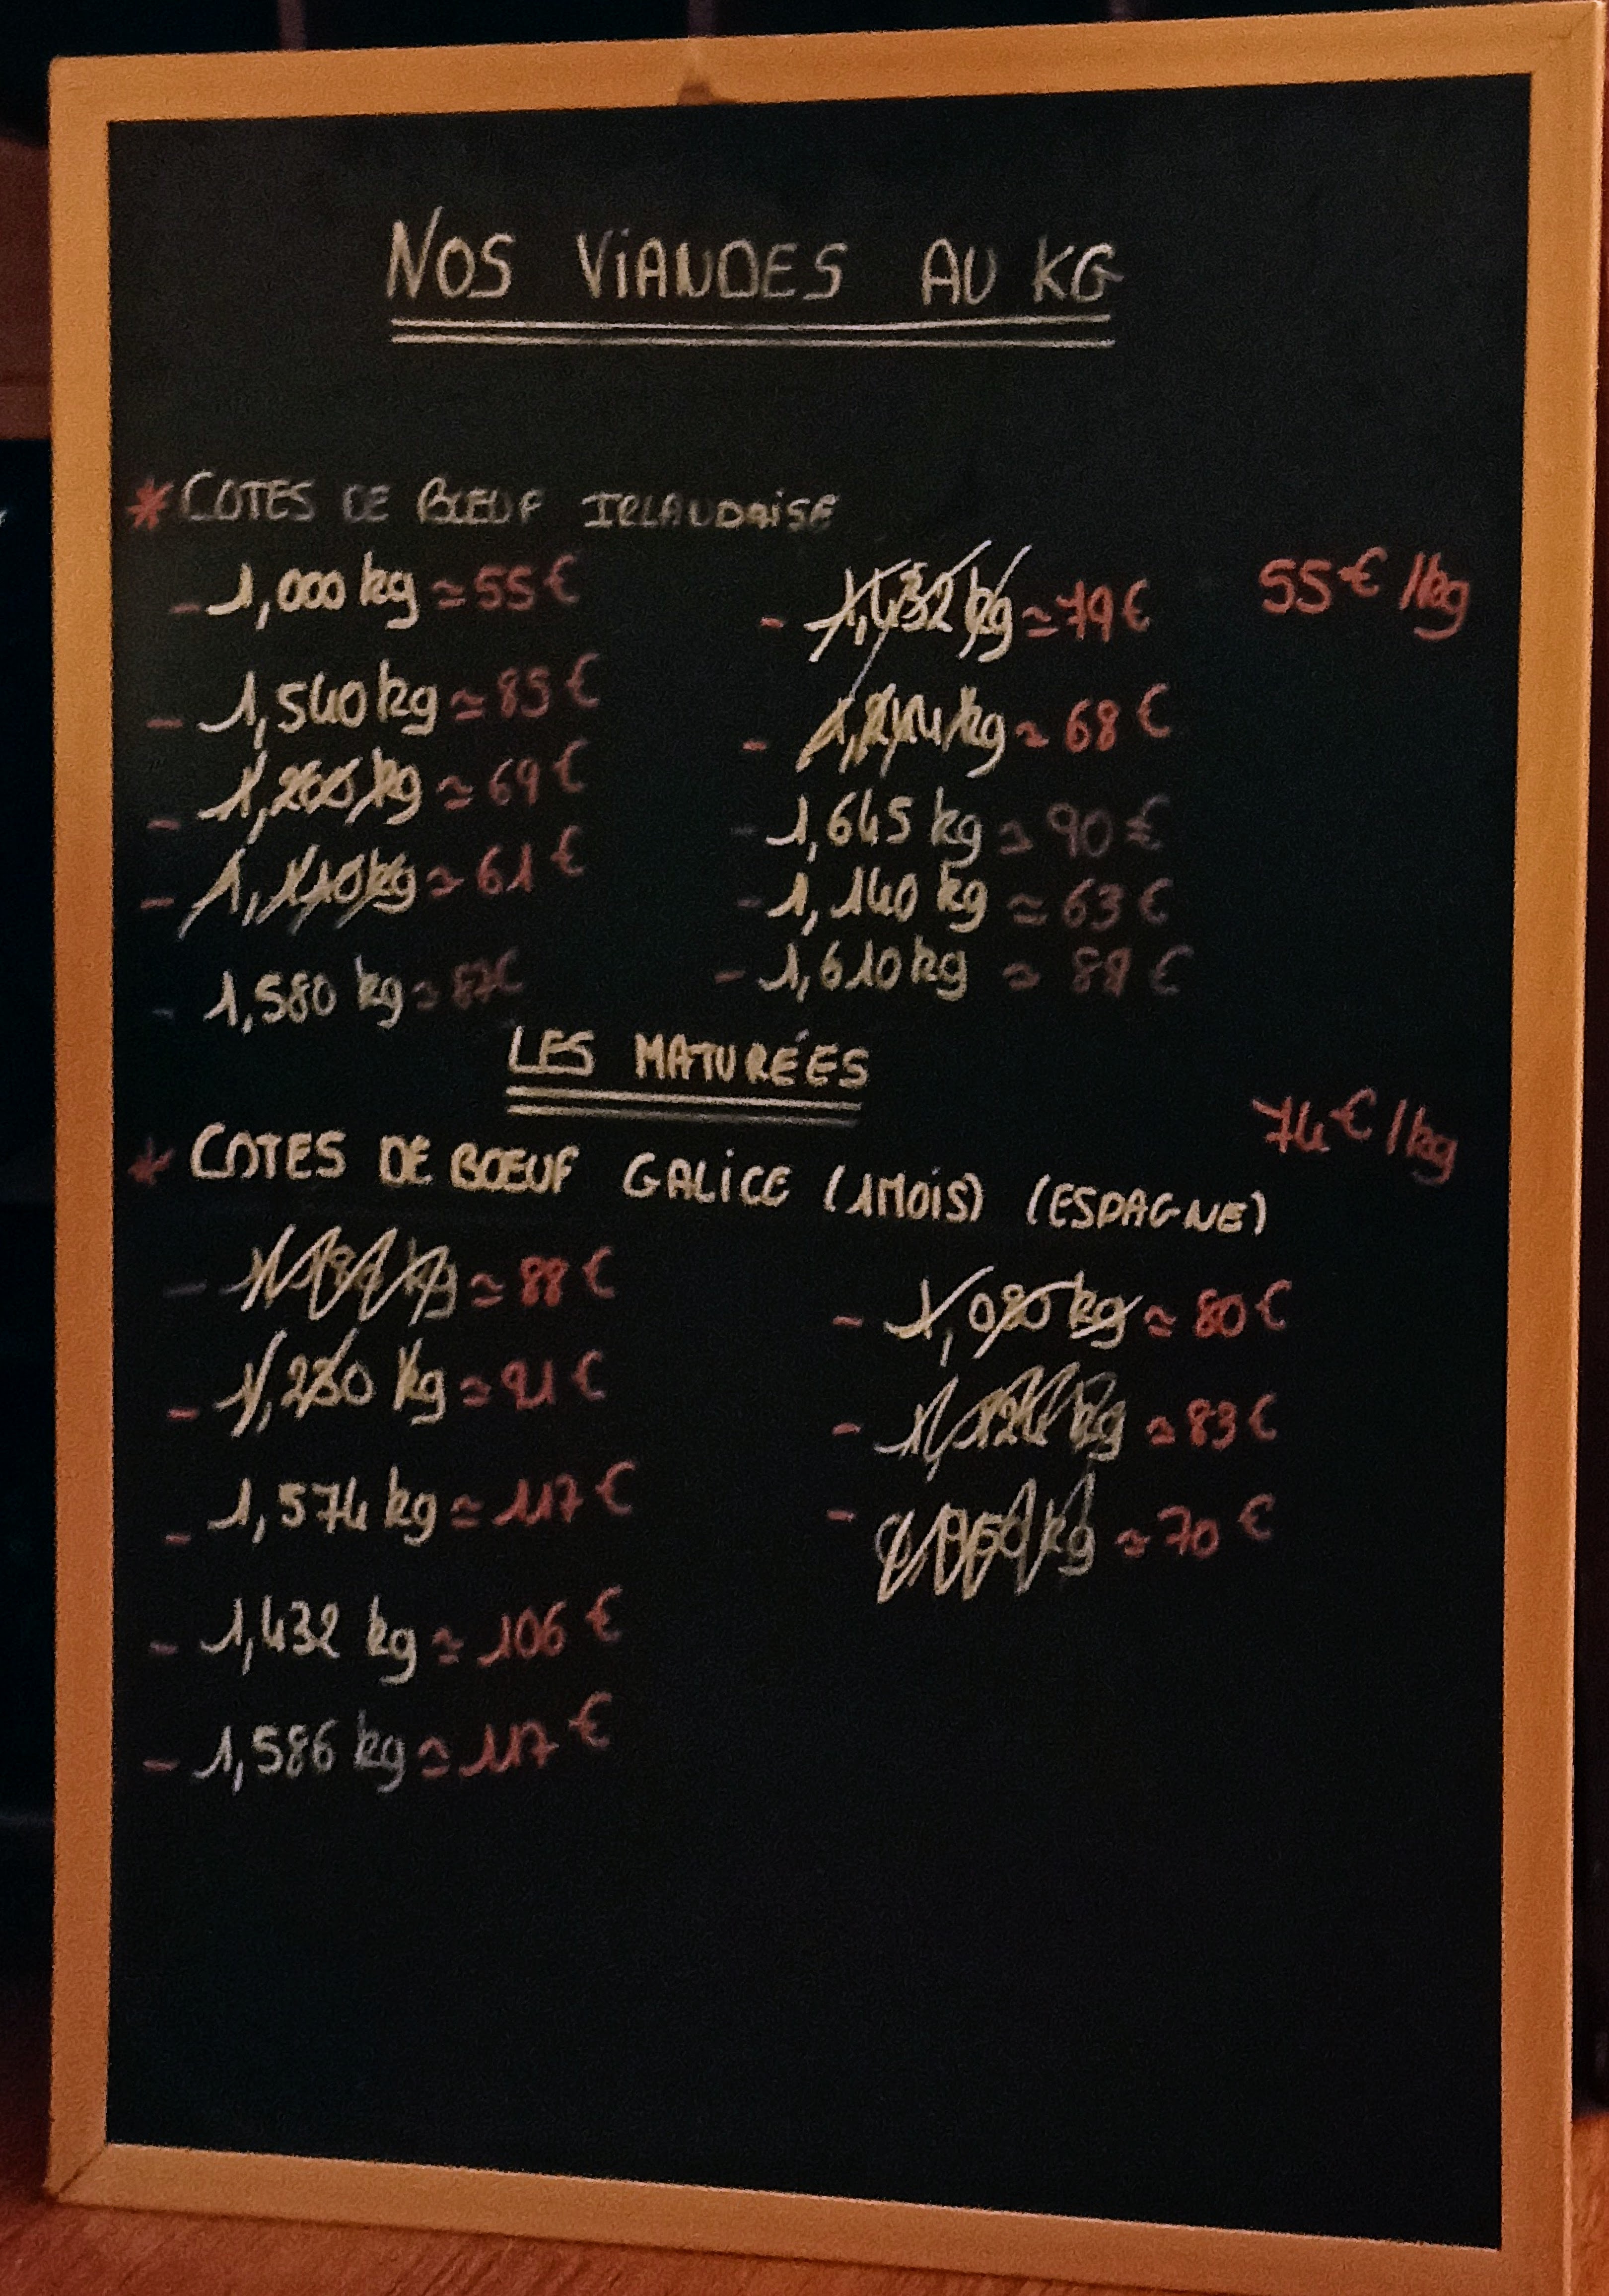 NOS VIANDES AU KG
* COTES DE BŒUF IRLANDAISE
55€/kg
- 1,000 kg ≃ 55€
- 1,540 kg ≃ 85€
- 1,260 kg ≃ 69€
- 1,110 kg ≃ 61€
- 1,580 kg ≃ 87€
- 1,432 kg ≃ 79€
- 1,244 kg ≃ 68€
- 1,645 kg ≃ 90€
- 1,140 kg ≃ 63€
- 1,610 kg ≃ 88€
LES MATURÉES
74€/kg
* COTES DE BŒUF GALICE (1MOIS) (ESPAGNE)
- kg ≃ 88€
- 1,230 kg ≃ 91€
- 1,574 kg ≃ 117€
- 1,432 kg ≃ 106€
- 1,586 kg ≃ 117€
- 1,080 kg ≃ 80€
- kg ≃ 83€
- kg ≃ 70€